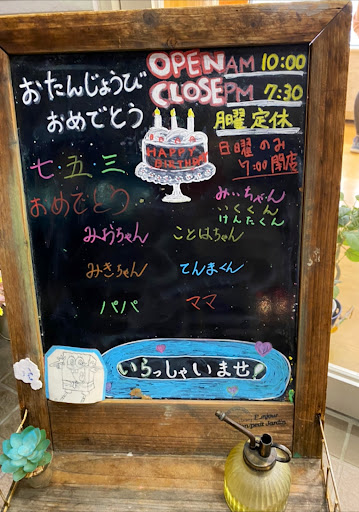 おたんじょうび
おめでとう
OPEN AM 10:00
CLOSE PM 7:30
月曜定休
日曜のみ
7:00閉店
HAPPY
BIRTHDAY
七五三
おめでとう
みぃちゃん
いくとくん
けんたくん
みおちゃん
ことはちゃん
みきちゃん
てんまくん
パパ
ママ
いらっしゃいませ!
Enjoy